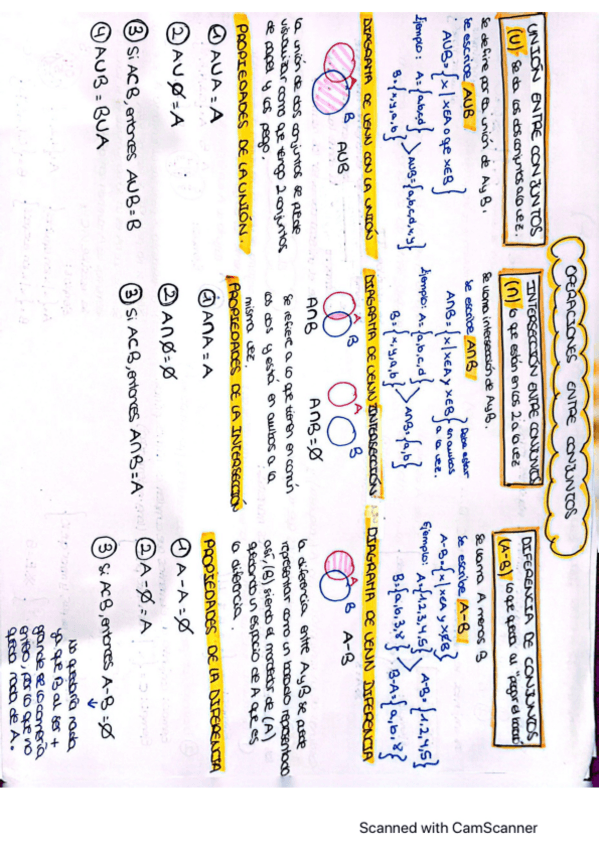 OPERACIONES ENTRE CONJUNTOS
UNIÓN ENTRE CONJUNTOS
(U) Se da los dos conjuntos a la vez.
Se define por la unión de A y B.
Se escribe AUB
AUB = {x | x∈A o que x∈B}
Ejemplo: A = {a,b,c,d}
B = {x,y,a,b}
AUB = {a,b,c,d,x,y}
DIAGRAMA DE VENN CON LA UNIÓN
A
B
AUB
la unión de dos conjuntos se puede
visualizar como que tengo 2 conjuntos
de papel y los pego.
PROPIEDADES DE LA UNIÓN.
1 AUA = A
2 AU∅ = A
3 Si ACB, entonces AUB = B
4 AUB = BUA
INTERSECCIÓN ENTRE CONJUNTOS
(∩) lo que están en los 2 a la vez
Se llama intersección de A y B.
Se escribe A∩B
A∩B = {x | x∈A y x∈B}
Debe estar
en ambos
a la vez.
Ejemplo: A = {a,b,c,d}
B = {x,y,a,b}
A∩B = {a,b}
DIAGRAMA DE VENN INTERSECCIÓN
A
B
A∩B
A
B
A∩B = ∅
se refiere a lo que tienen en común
los dos y está en ambos a la
misma vez.
PROPIEDADES DE LA INTERSECCIÓN
1 A∩A = A
2 A∩∅ = ∅
3 Si ACB, entonces A∩B = A
DIFERENCIA DE CONJUNTOS
(A-B) lo que queda al "pegar el bocao"
Se llama A menos B
Se escribe A-B
A-B = {x | x∈A y x∉B}
Ejemplo: A = {1,2,3,4,5}
B = {a,b,3,8}
A-B = {1,2,4,5}
B-A = {a,b,8}
DIAGRAMA DE VENN DIFERENCIA
A
B
A-B
la diferencia entre A y B se puede
representar como un bocado representado
así, (B) siendo el mordedor de (A)
quedando un espacio de A que es
la diferencia.
PROPIEDADES DE LA DIFERENCIA
1 A-A = ∅
2 A-∅ = A
3 Si ACB, entonces A-B = ∅
no quedaría nada
ya que B al ser +
grande se lo comería
entero, por lo que no
queda nada de A.
Scanned with CamScanner